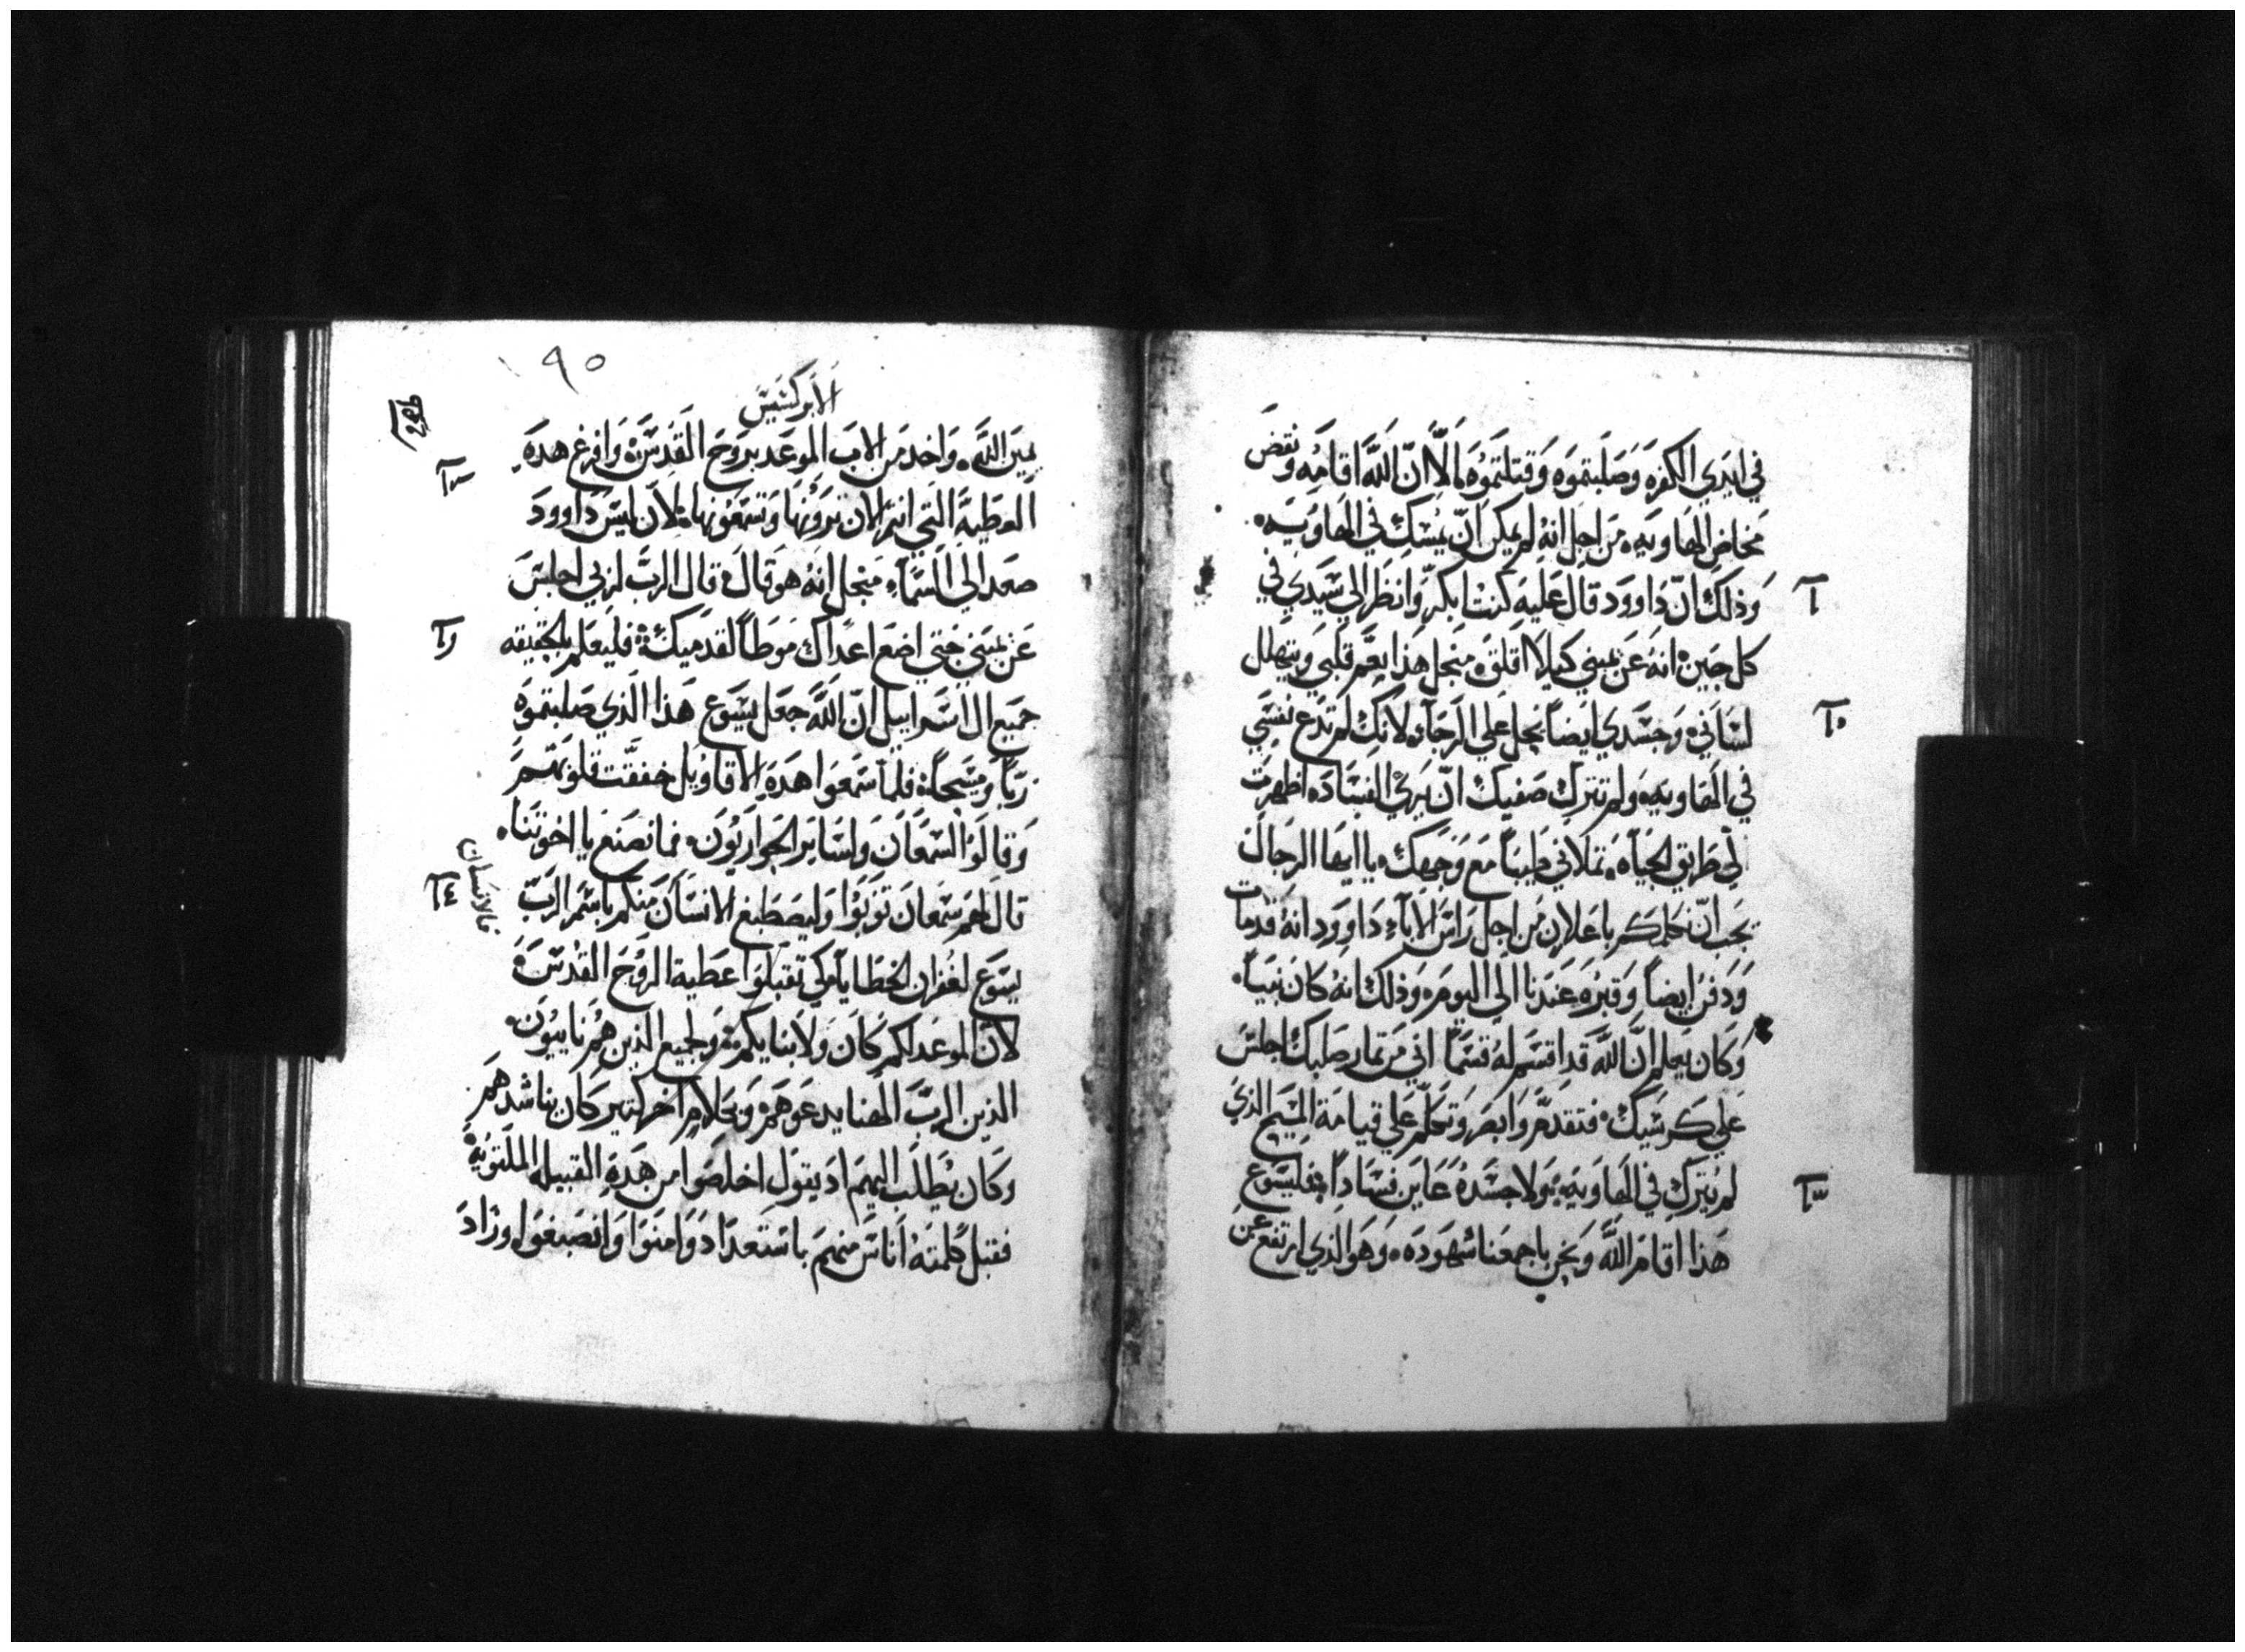 في ايدي الكفره وصلبتموه وقتلتموه الا ان الله اقامه ونقض
مخاض الهاويه من اجل انه لم يمكن ان يمسك في الهاويه
وذلك ان داوود قال عليه كنت ابكر وانظر الي سيدي في
كل حين انه عن يميني كيلا اقلق منجل هذا نعم قلبي ويتهلل
لساني وجسدي ايضا يحل علي الرجاء لانك لم تدع نفسي
في الهاويه ولم تترك صفيك ان يري الفساد اظهرت
لي طريق الحياه تملاني طيبا مع وجهك يا ايها الرجال
يجب ان نكلمكم باعلان من اجل راس الاباء داوود انه قد مات
ودفن ايضا وقبره عندنا الي اليوم وذلك انه كان نبيا
وكان يعلم ان الله قد اقسم له قسما اني من ثمار صلبك اجلس
علي كرسيك فتقدم وابصر وتكلم علي قيامة المسيح الذي
لم يترك في الهاويه ولا جسده عاين فسادا فليسوع
هذا اقام الله ونحن باجمعنا شهوده وهو الذي ارتفع عن
١٩٥
الابركسيس
يمين الله واخد من الاب الموعد بروح القدس وافرغ هده
العطية التي انتم الان ترونها وتسمعونها لان ليس داوود
صعد الي السماء منجل انه هو قال قال الرب لربي اجلس
عن يميني حتي اضع اعداك موطا لقدميك فليعلم بالحقيقه
جميع ال اسراييل ان الله جعل يسوع هذا الذي صلبتموه
ربا ومسيحا فلما سمعوا هده الاقاويل خفقت قلوبهم
وقالوا لسمعان ولساير الحواريون فما نصنع يا اخوتنا
قال لهم سمعان توبوا وليصطبغ الانسان منكم باسم الرب
يسوع لغفران الخطايا كي تقبلوا عطية الروح القدس
لان الموعد لكم كان ولابنايكم ولجميع الذين هم نايبون
الذين الرب الهنا يدعوهم وبكلام اخر كتير كان يناشدهم
وكان يطلب اليهم اد يقول اخلصوا من هده القبيله الملتويه
فقبل كلمته اناس منهم باستعداد وامنوا وانصبغوا وزاد